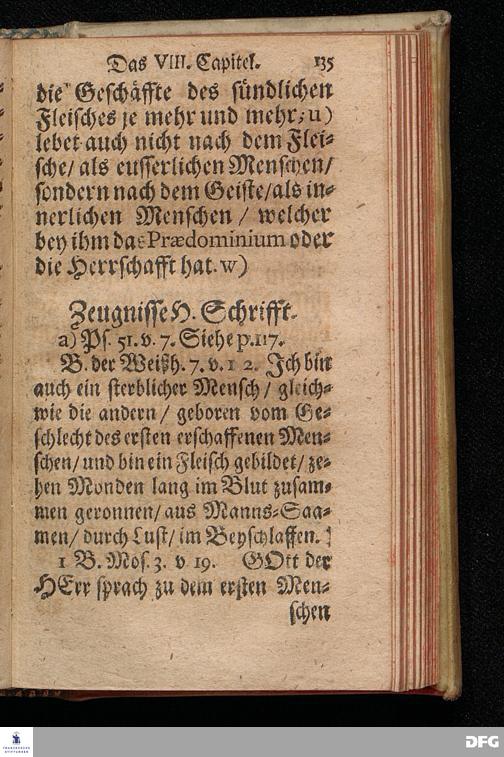 Das VIII. Capitel. 135
die Geschäffte des sündlichen
Fleisches je mehr und mehr; u)
lebet auch nicht nach dem Flei⸗
sche/ als eusserlichen Menschen/
sondern nach dem Geiste/ als in⸗
nerlichen Menschen / welcher
bey ihm das Prædominium oder
die Herrschafft hat. w)
Zeugnisse H. Schrifft.
a) Ps. 51. v. 7. Siehe p. 117.
B. der Weißh. 7. v. 1 2. Ich bin
auch ein sterblicher Mensch/ gleich⸗
wie die andern/ geboren vom Ge⸗
schlecht des ersten erschaffenen Men⸗
schen/ und bin ein Fleisch gebildet/ ze⸗
hen Monden lang im Blut zusam⸗
men geronnen/ aus Manns⸗Saa⸗
men/ durch Lust/ im Beyschlaffen.
1 B. Mos. 3. v 19. GOtt der
HErr sprach zu dem ersten Men⸗
schen
FRANCKESCHE
STIFTUNGEN
DFG